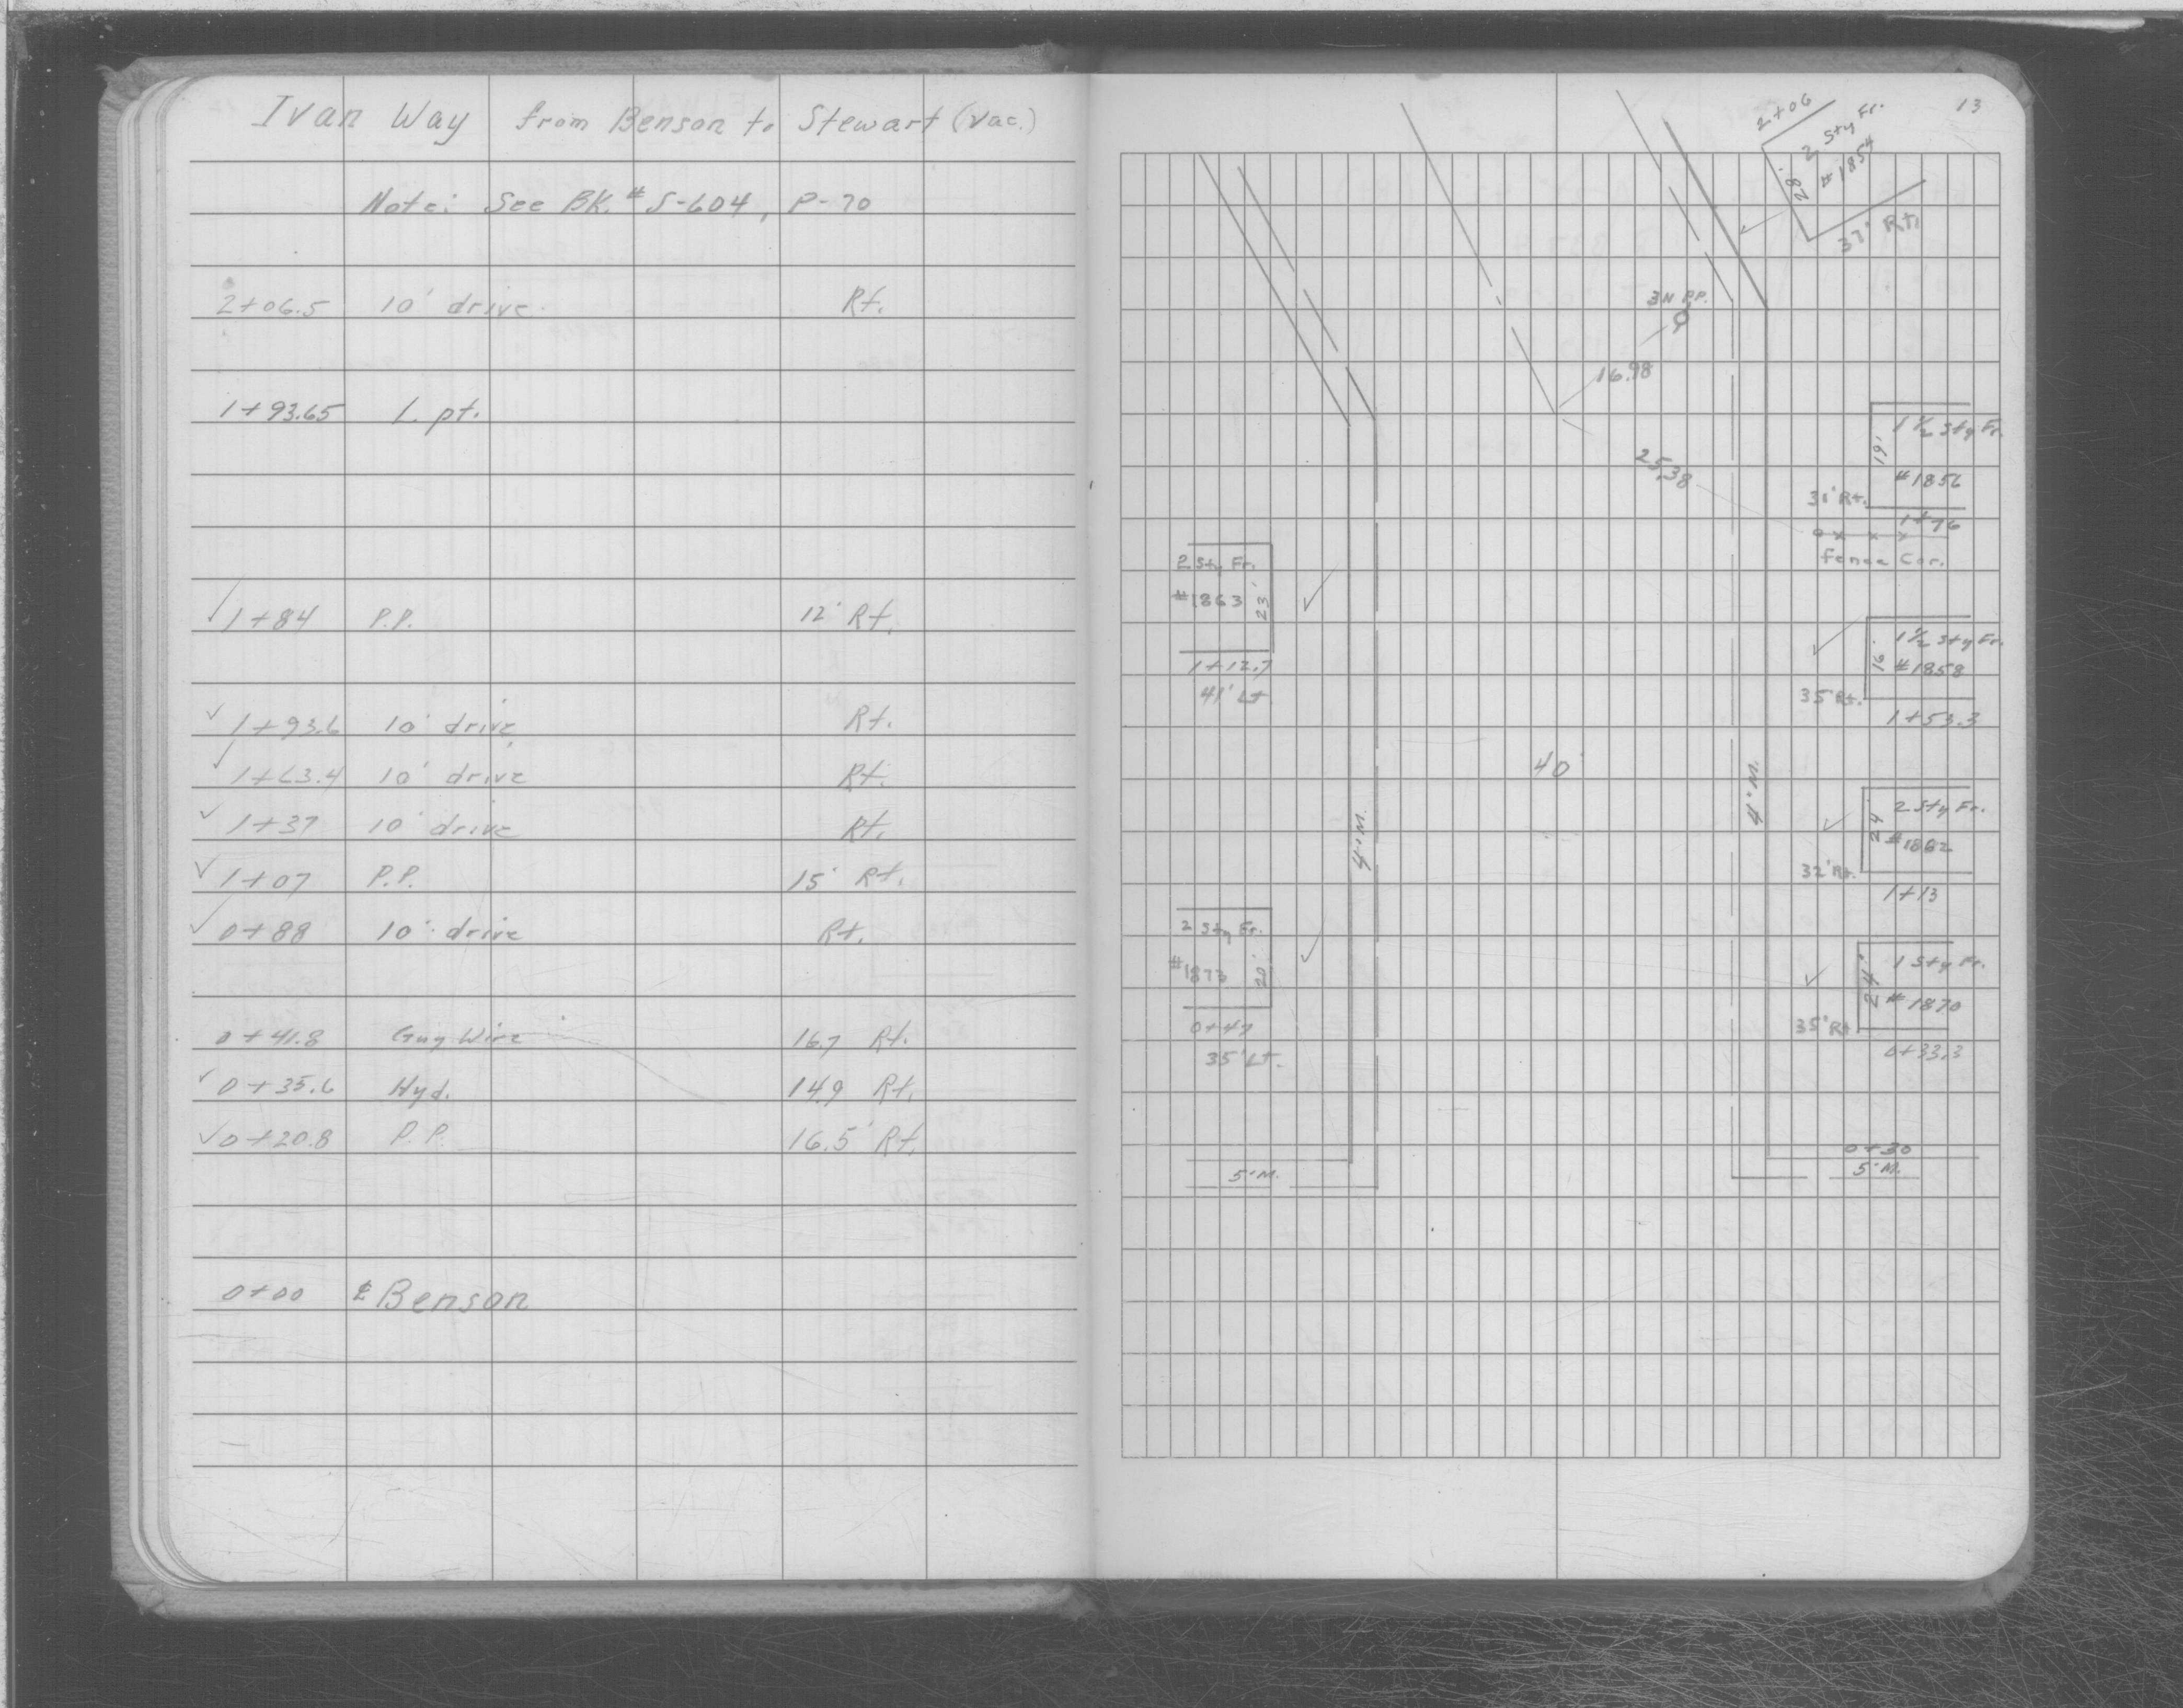 Ivan Way from Benson to Stewart (vac.)
Note: See BK. # S-604, P-70
2+06.5 10' drive Rt.
1+93.65 L. pt.
1+84 P.P. 12' Rt.
1+93.6 10' drive Rt.
1+63.4 10' drive Rt.
1+37 10' drive Rt.
1+07 P.P. 15' Rt.
0+88 10' drive Rt.
0+41.8 Guy Wire 16.7 Rt.
0+35.6 Hyd. 14.9 Rt.
0+20.8 P.P. 16.5' Rt.
0+00 ℄ Benson
13
2+06
2 Sty Fr.
#1854
28'
37' Rt.
3N P.P.
16.98
25.38
1 1/2 Sty Fr.
19'
#1856
31' Rt.
1+76
fence Cor.
2 Sty Fr.
#1863 23'
1+12.7
41' Lt
1 1/2 Sty Fr.
16'
#1858
35' Rt.
1+53.3
40'
4' M.
4' M.
2 Sty Fr.
24'
#1862
32' Rt.
1+13
2 Sty Fr.
#1873 20'
0+47
35' Lt.
1 Sty Fr.
24'
#1870
35' Rt
0+33.3
0+30
5' M.
5' M.